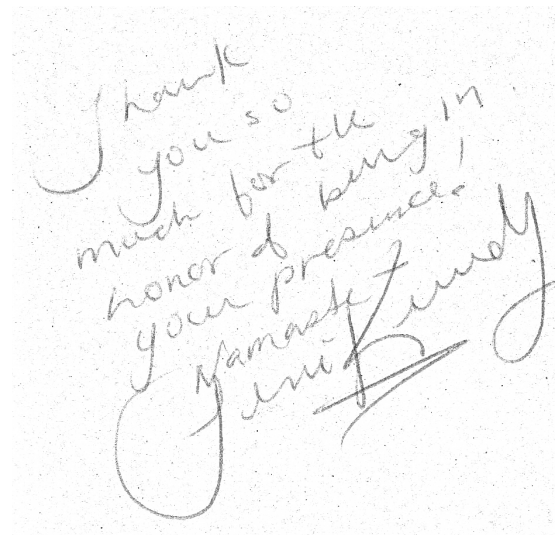 Thank
you so
much for the
honor of being in
your presence!
Namaste